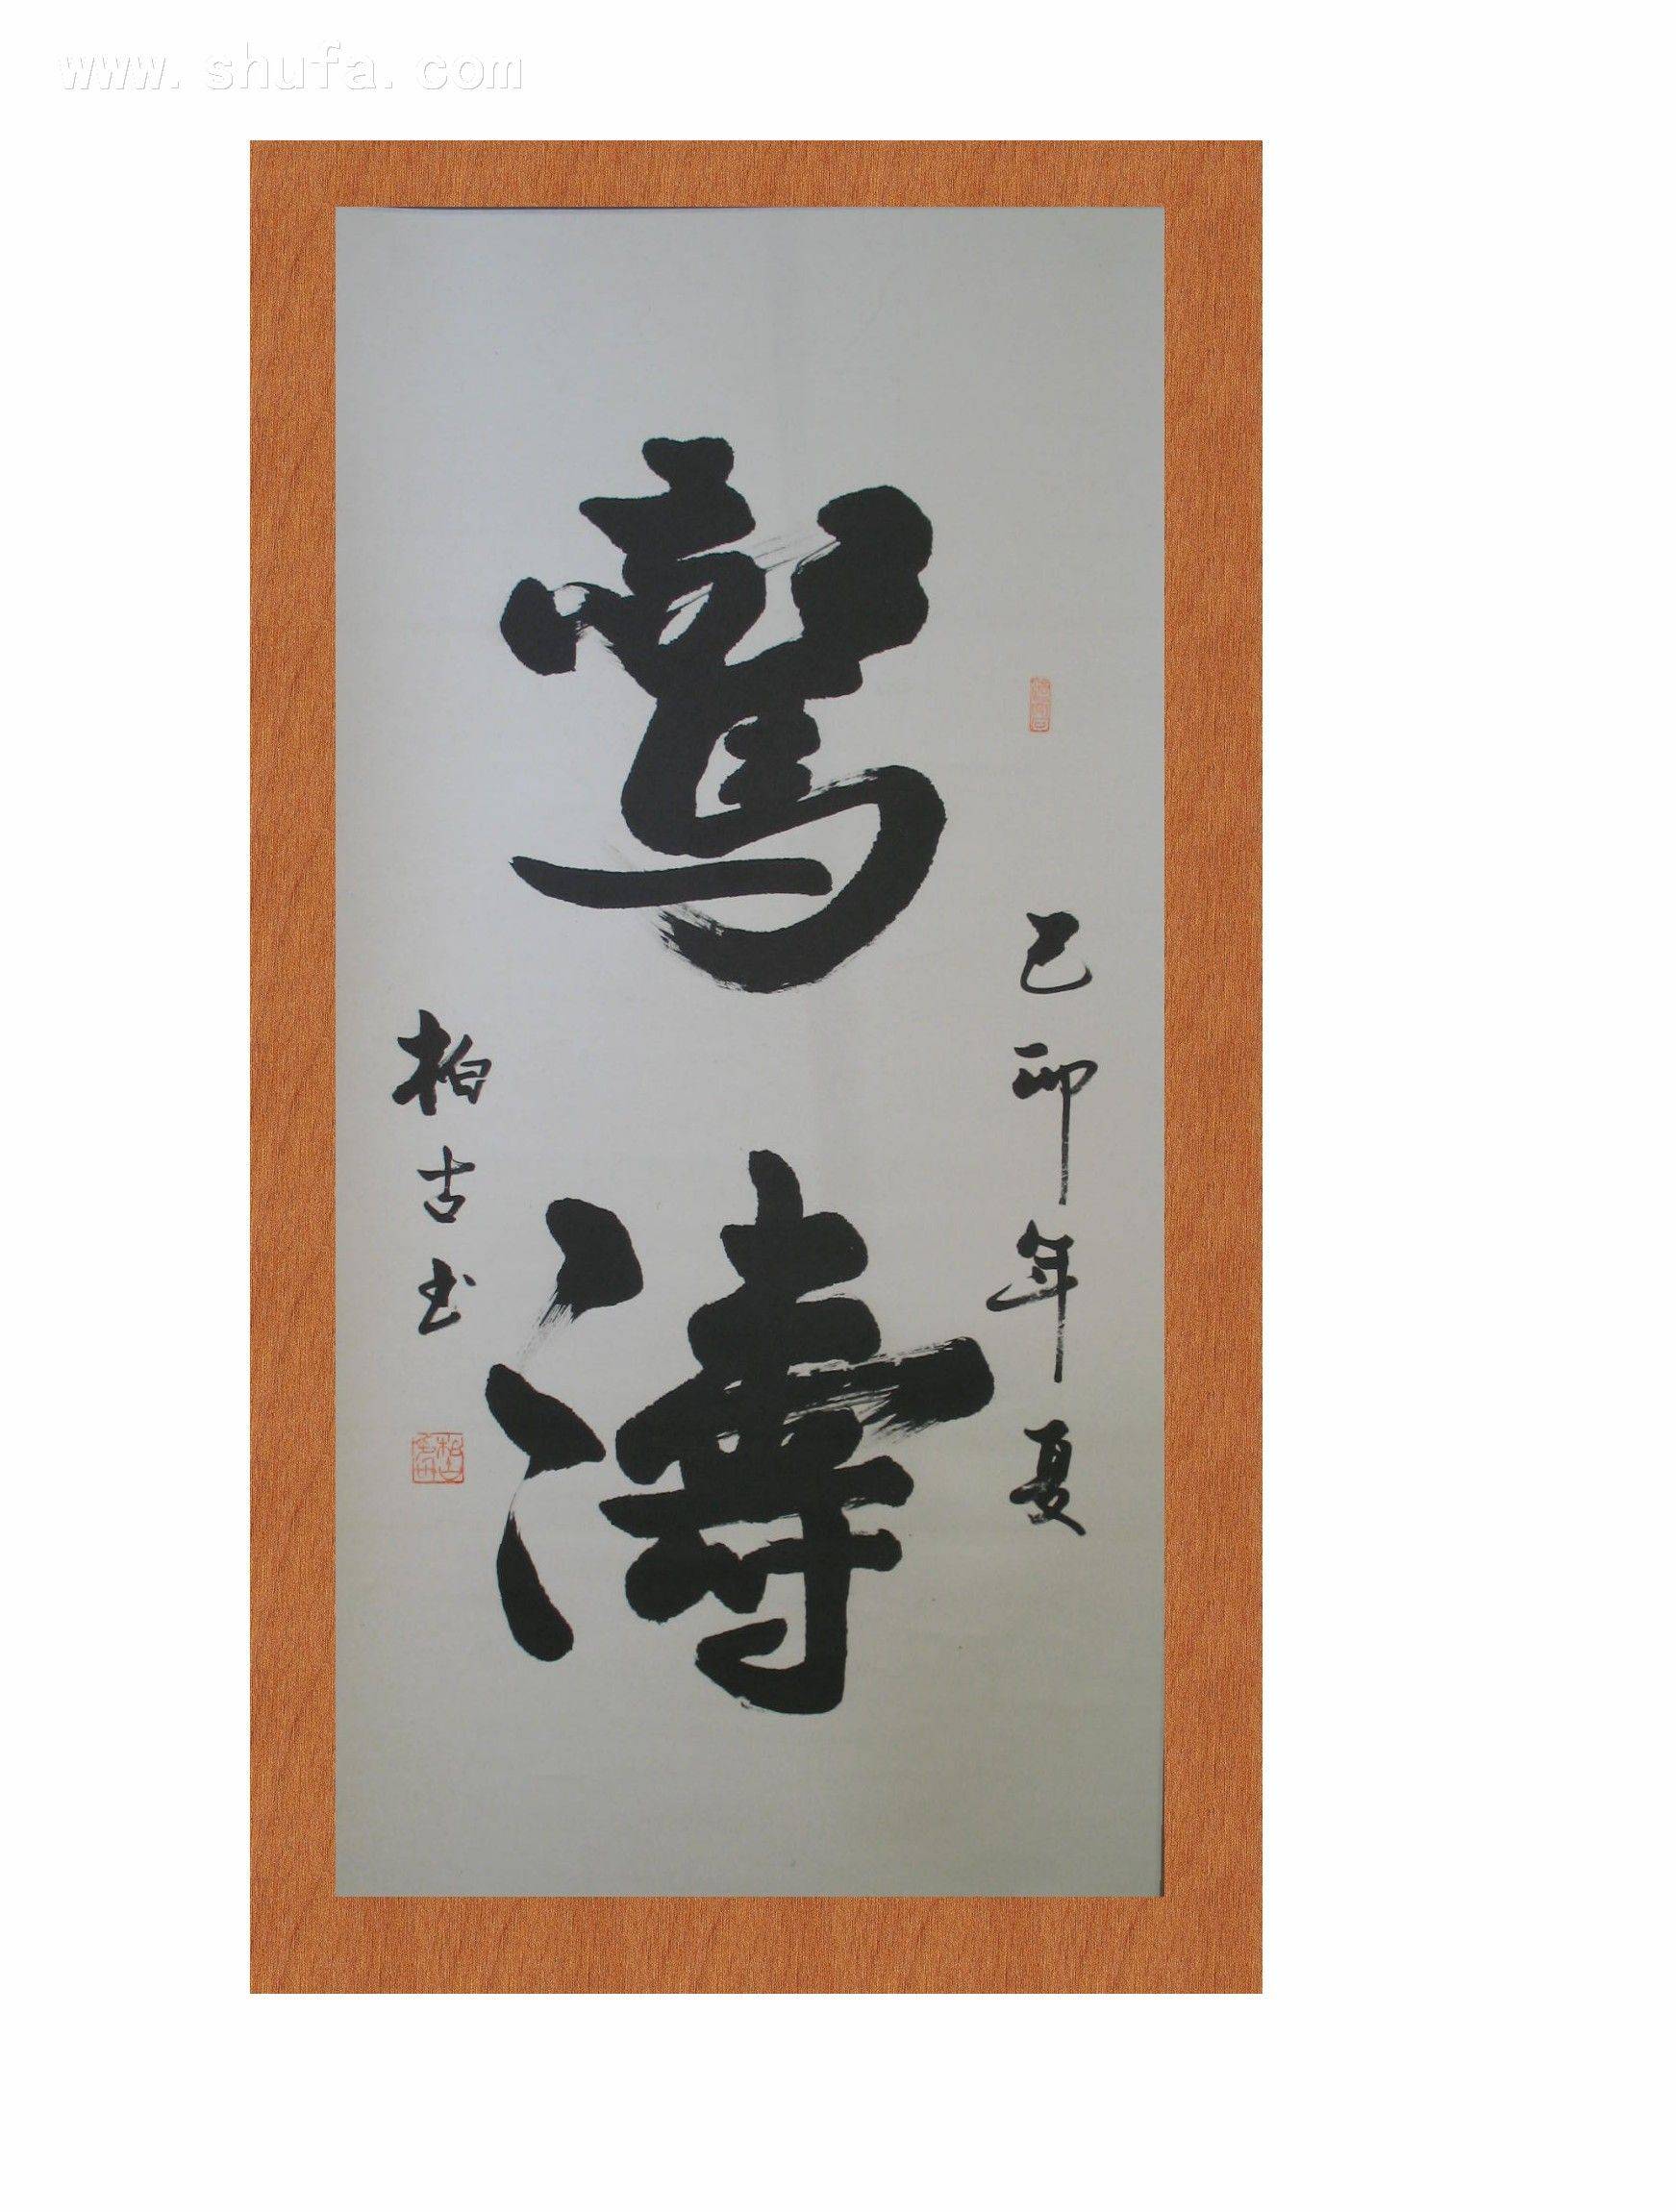 www.shufa.com
己卯年夏
驚濤
柏古书